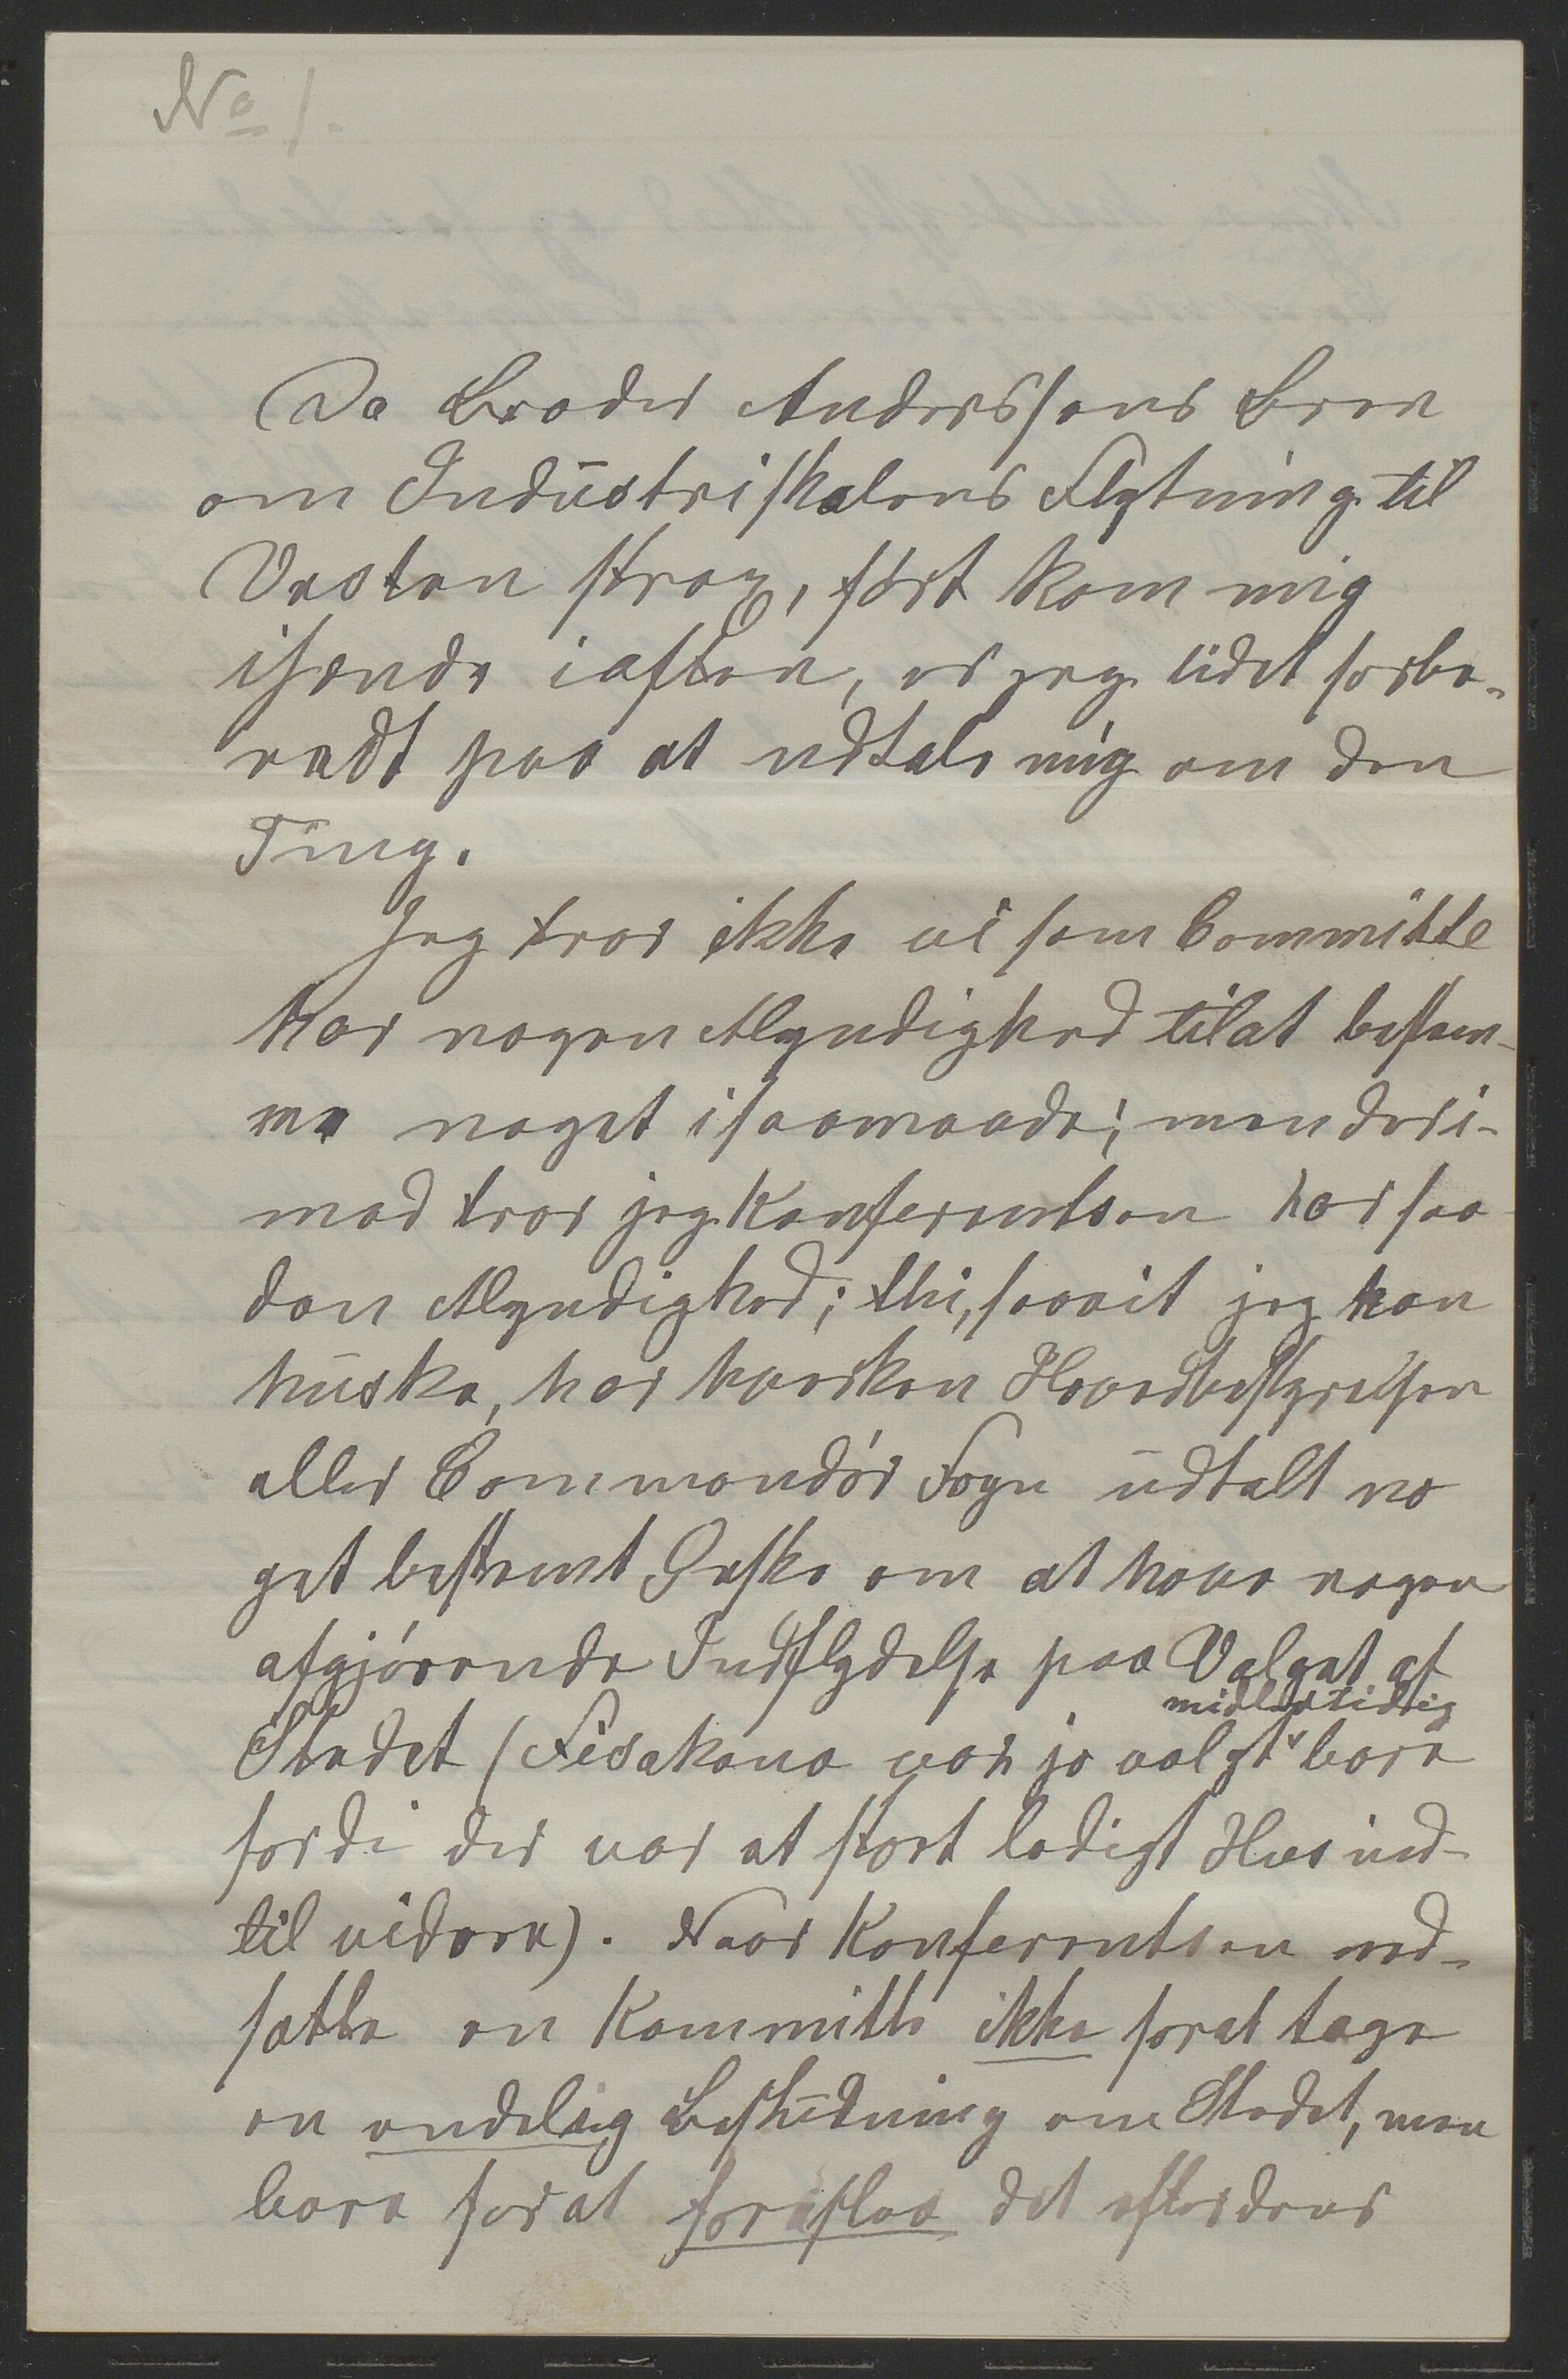 No 1.
Da Broder Anderssens Brev
om Industriskolens Flytning til
Vesten strax, först kom mig
ihænde iaften, er jeg lidet forbe-
redt paa at udtale mig om den
Ting.
Jeg tror ikke vi som Committe
har nogen Myndighed til at bestem-
me noget isaamaade; men deri-
mod tror jeg Konferentsen har saa-
dan Myndighed; thi, saavit jeg kan
huske, har hverken Hovedbestyrelsen
eller Commandör Fogn udtalt no
get bestemt Ønske om at have nogen
afgjörende Indflydelse paa Valget af
Stedet (Fisakana var jo valgt midlertidig bare
fordi der var et stort ledigt Hus ind-
til videre). Naar Konferentsen ned-
satte en Kommitte ikke forat tage
en endelig Beslutning om Stedet, men
bare for at foreslaa det efter deres